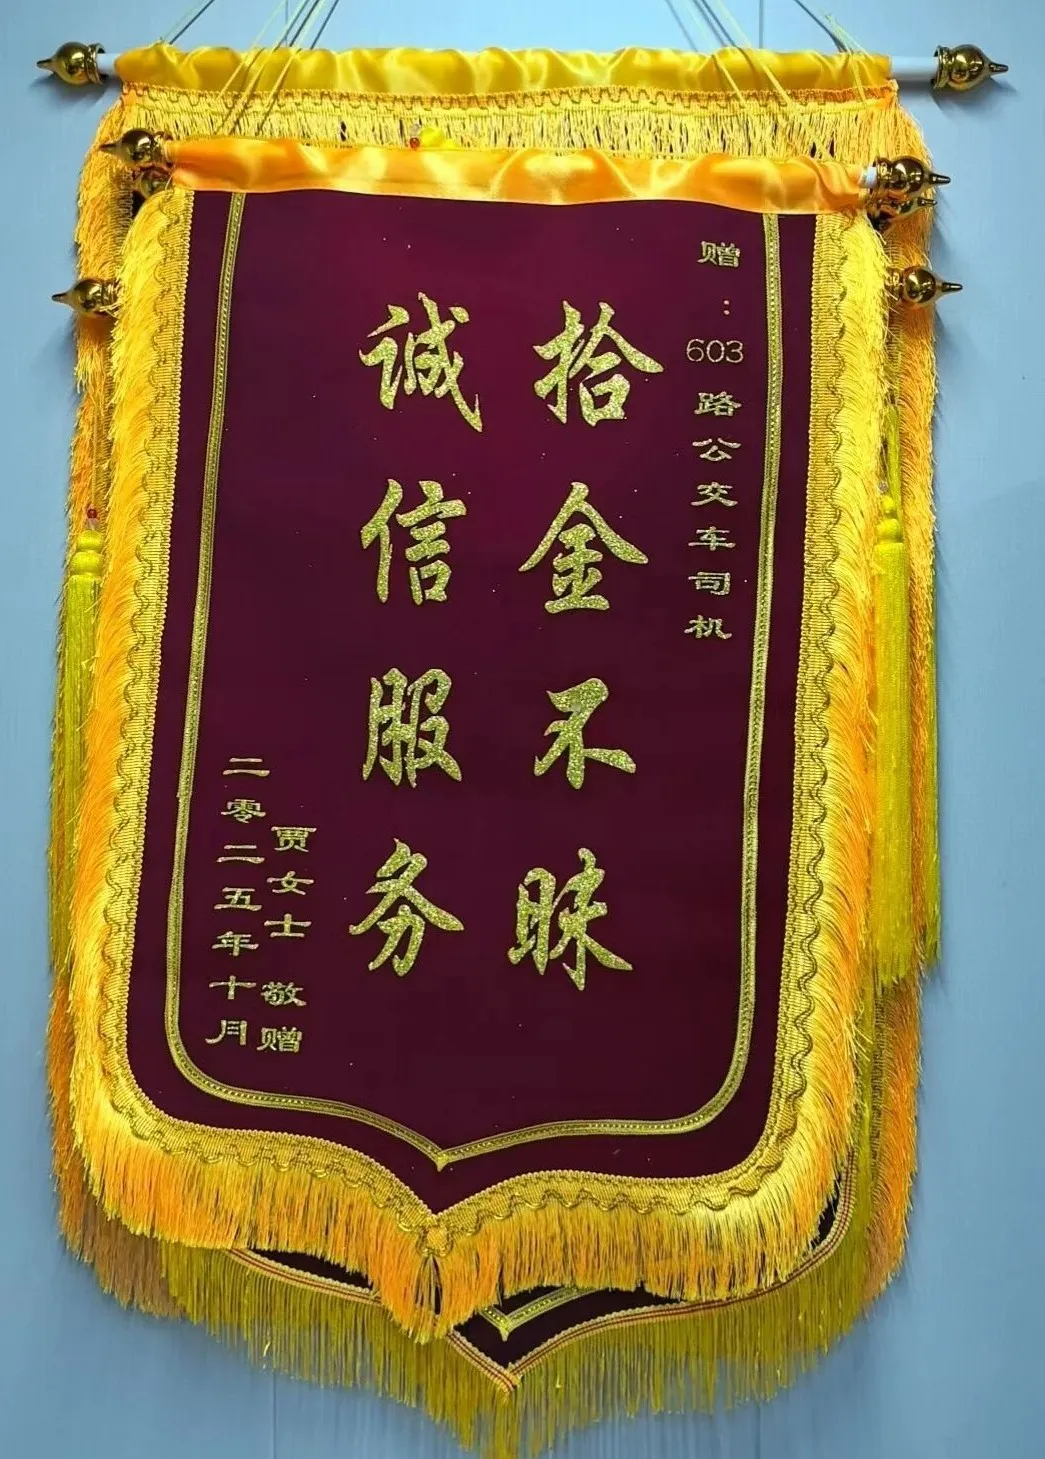 赠：603路公交车司机
拾金不昧
诚信服务
贾女士 敬赠
二零二五年十月